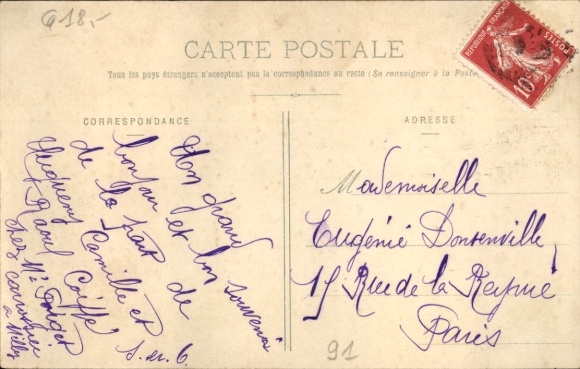 G18,-
CARTE POSTALE
Tous les pays étrangers n'acceptent pas la correspondance au recto (Se renseigner à la Poste
REPUBLIQUE FRANÇAISE
POSTES
10
CORRESPONDANCE
Un grand
bonjour et bon souvenir
de la part de
Camille et
Raoul Coiffé
chez Mr
à Milly
S. et O.
ADRESSE
Mademoiselle
Eugénie Donsenville
15 Rue de la Reynie
Paris
91